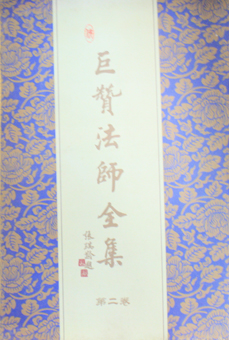 巨贊法師全集
第二卷